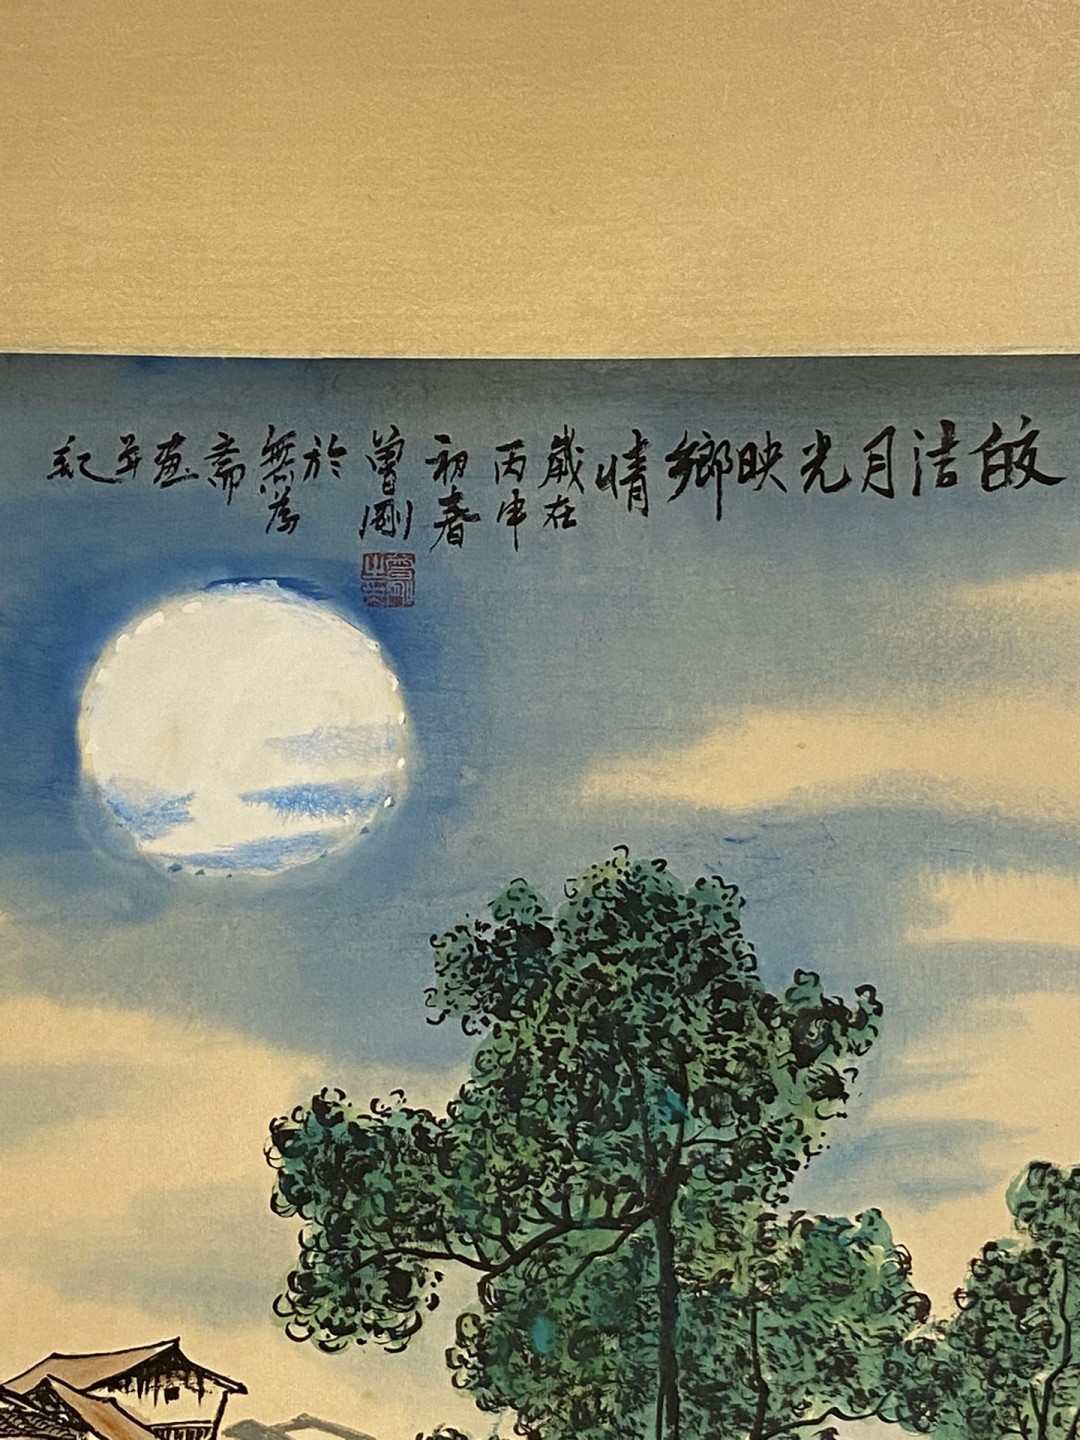 皎潔月光映鄉情
歲在
丙申
初春
曾剛
於
無為
齋
畫並
記